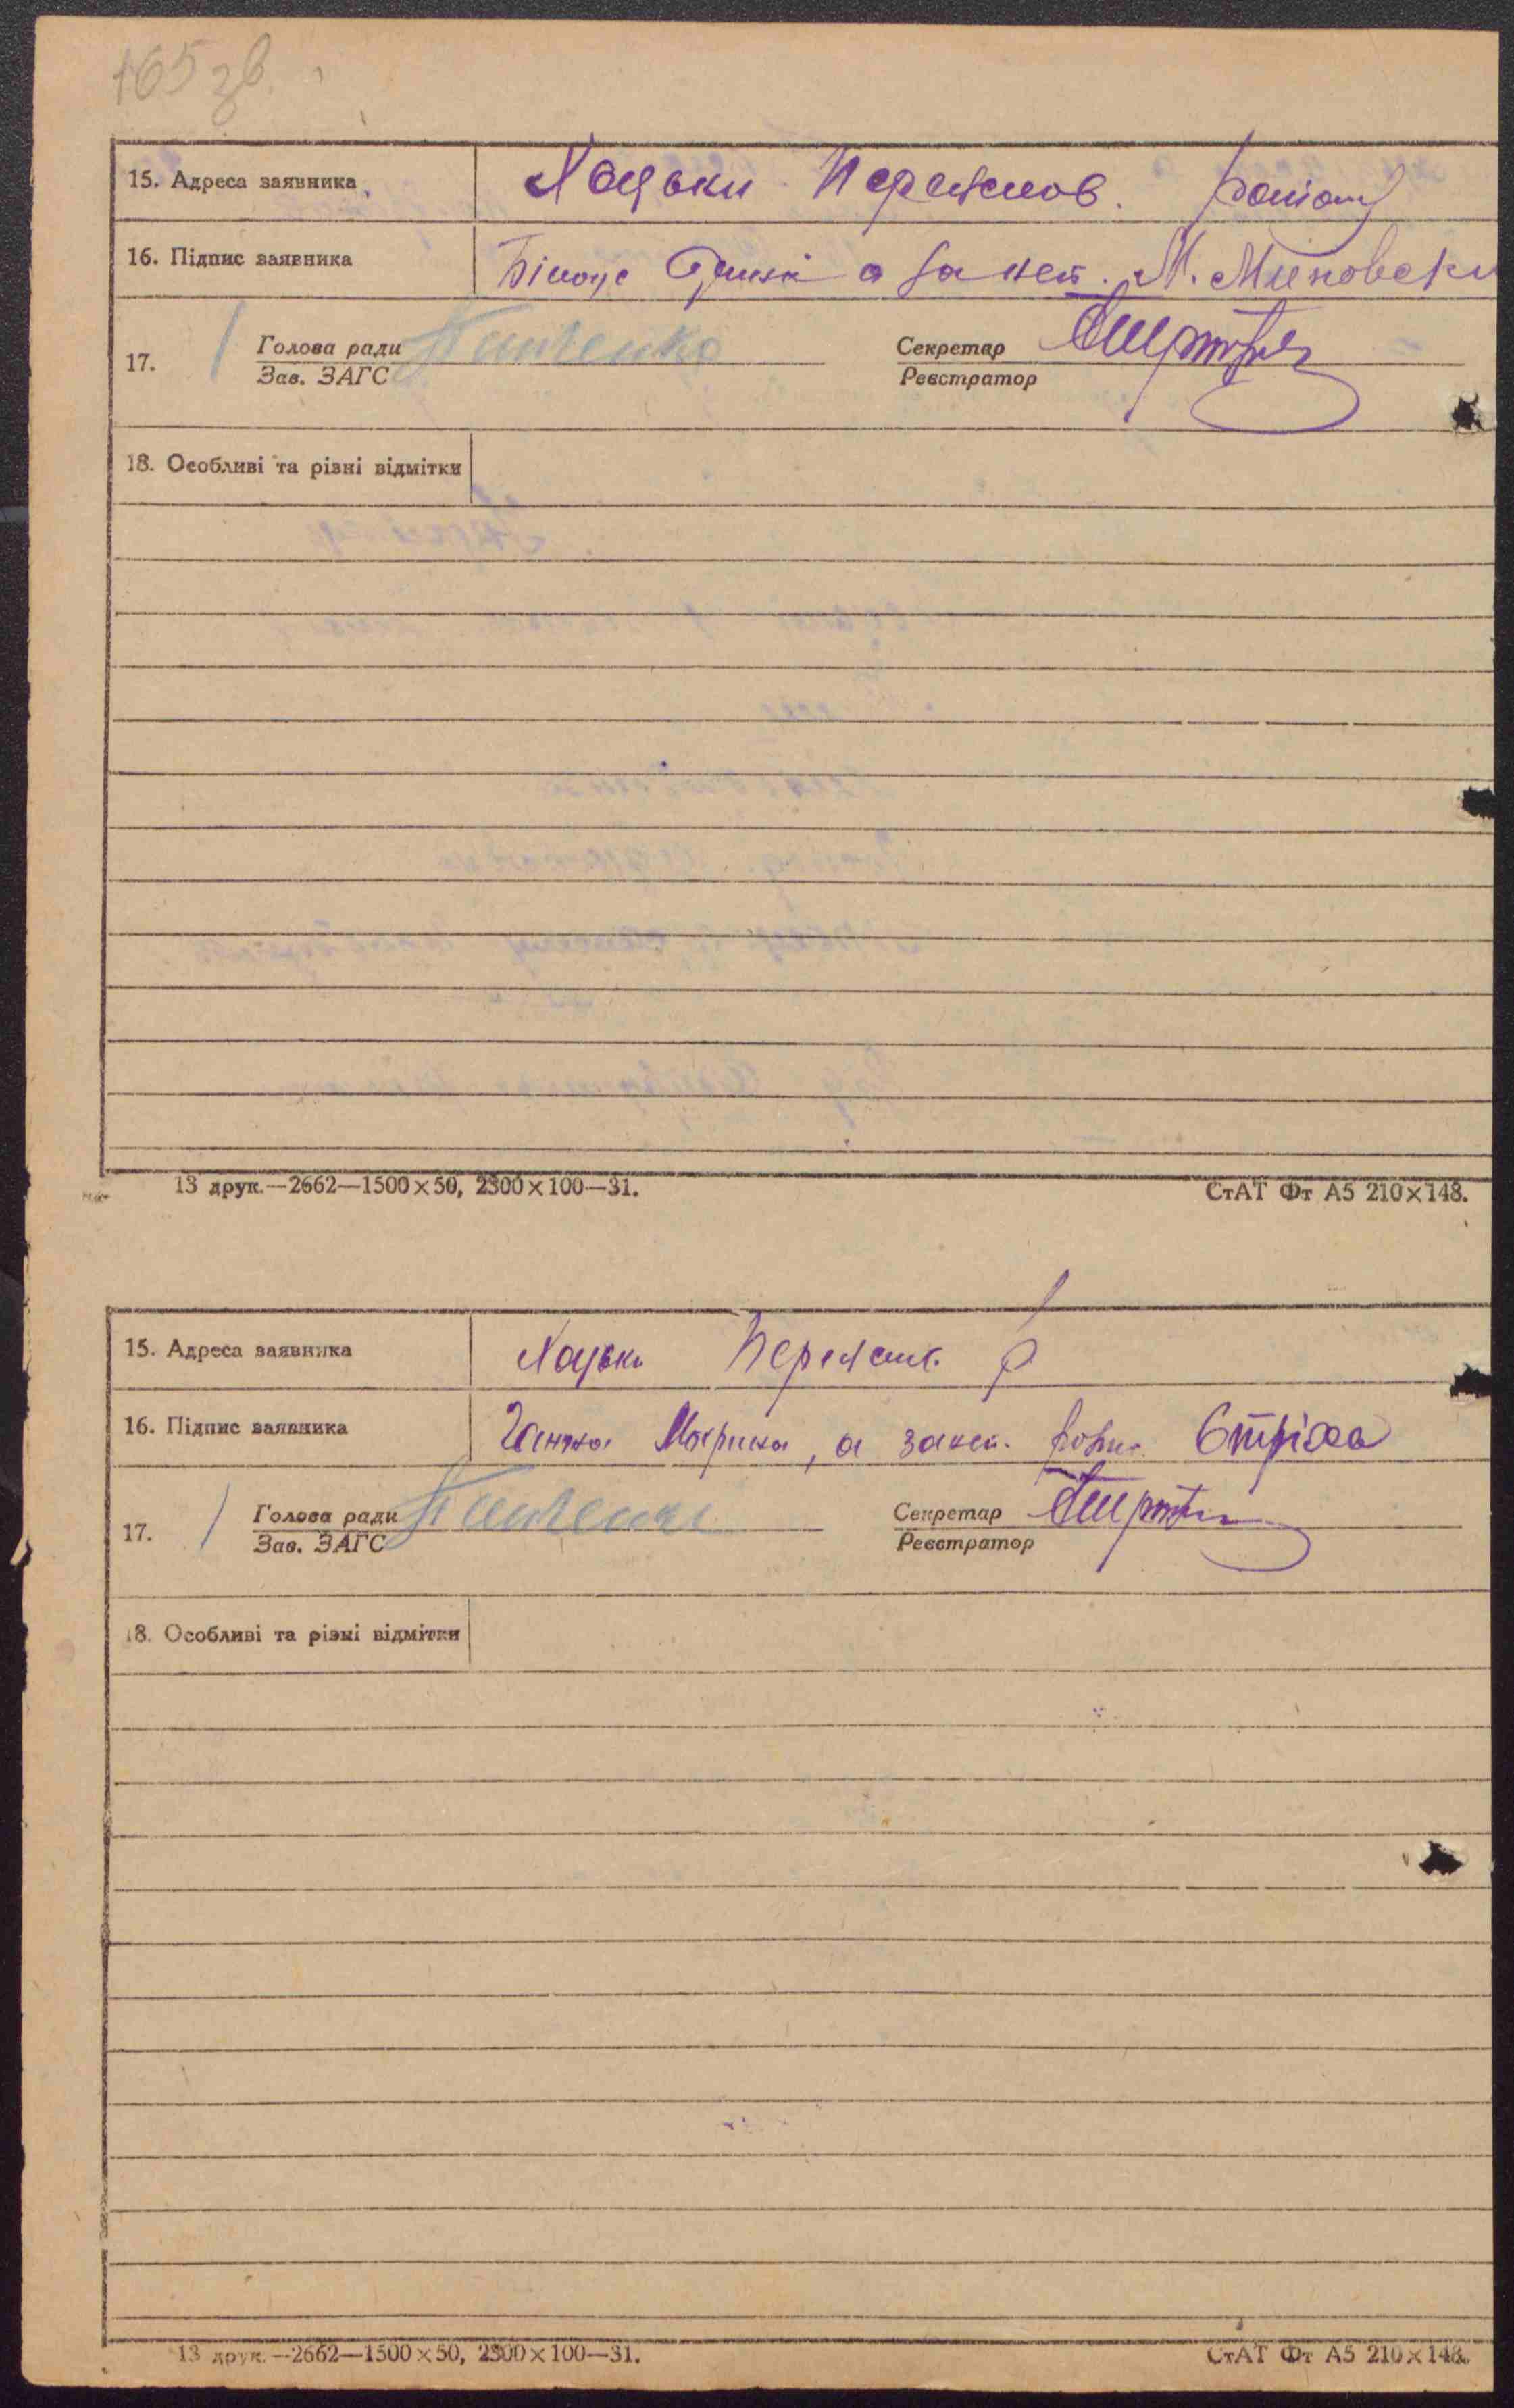 165 зв.
15. Адреса заявника Хоцьки Переяслов. району
16. Підпис заявника а за неп. М. Миновськи
17. Голова ради Панченко Секретар
Зав. ЗАГС Реєстратор
18. Особливі та різні відмітки
13 друк.—2662—1500×50, 2300×100—31. СтАТ Фт А5 210×148.
15. Адреса заявника Хоцьки Переясл. р
16. Підпис заявника Марина, а за неп. розп. Стріха
17. Голова ради Панченко Секретар
Зав. ЗАГС Реєстратор
18. Особливі та різні відмітки
13 друк.—2662—1500×50, 2300×100—31. СтАТ Фт А5 210×148.